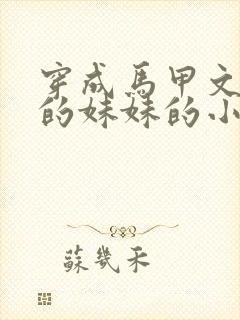 穿成馬甲文
的妹妹的小
蘇幾禾